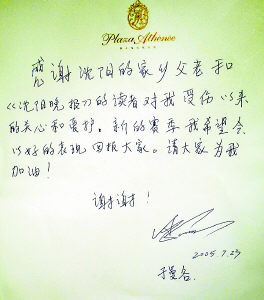 Plaza Athénée
BANGKOK
感谢沈阳的家乡父老和
《沈阳晚报》的读者对我受伤以来
的关心和爱护，新的赛季我希望会
以好的表现回报大家。请大家为我
加油！
谢谢！
2005.7.23
于曼谷.